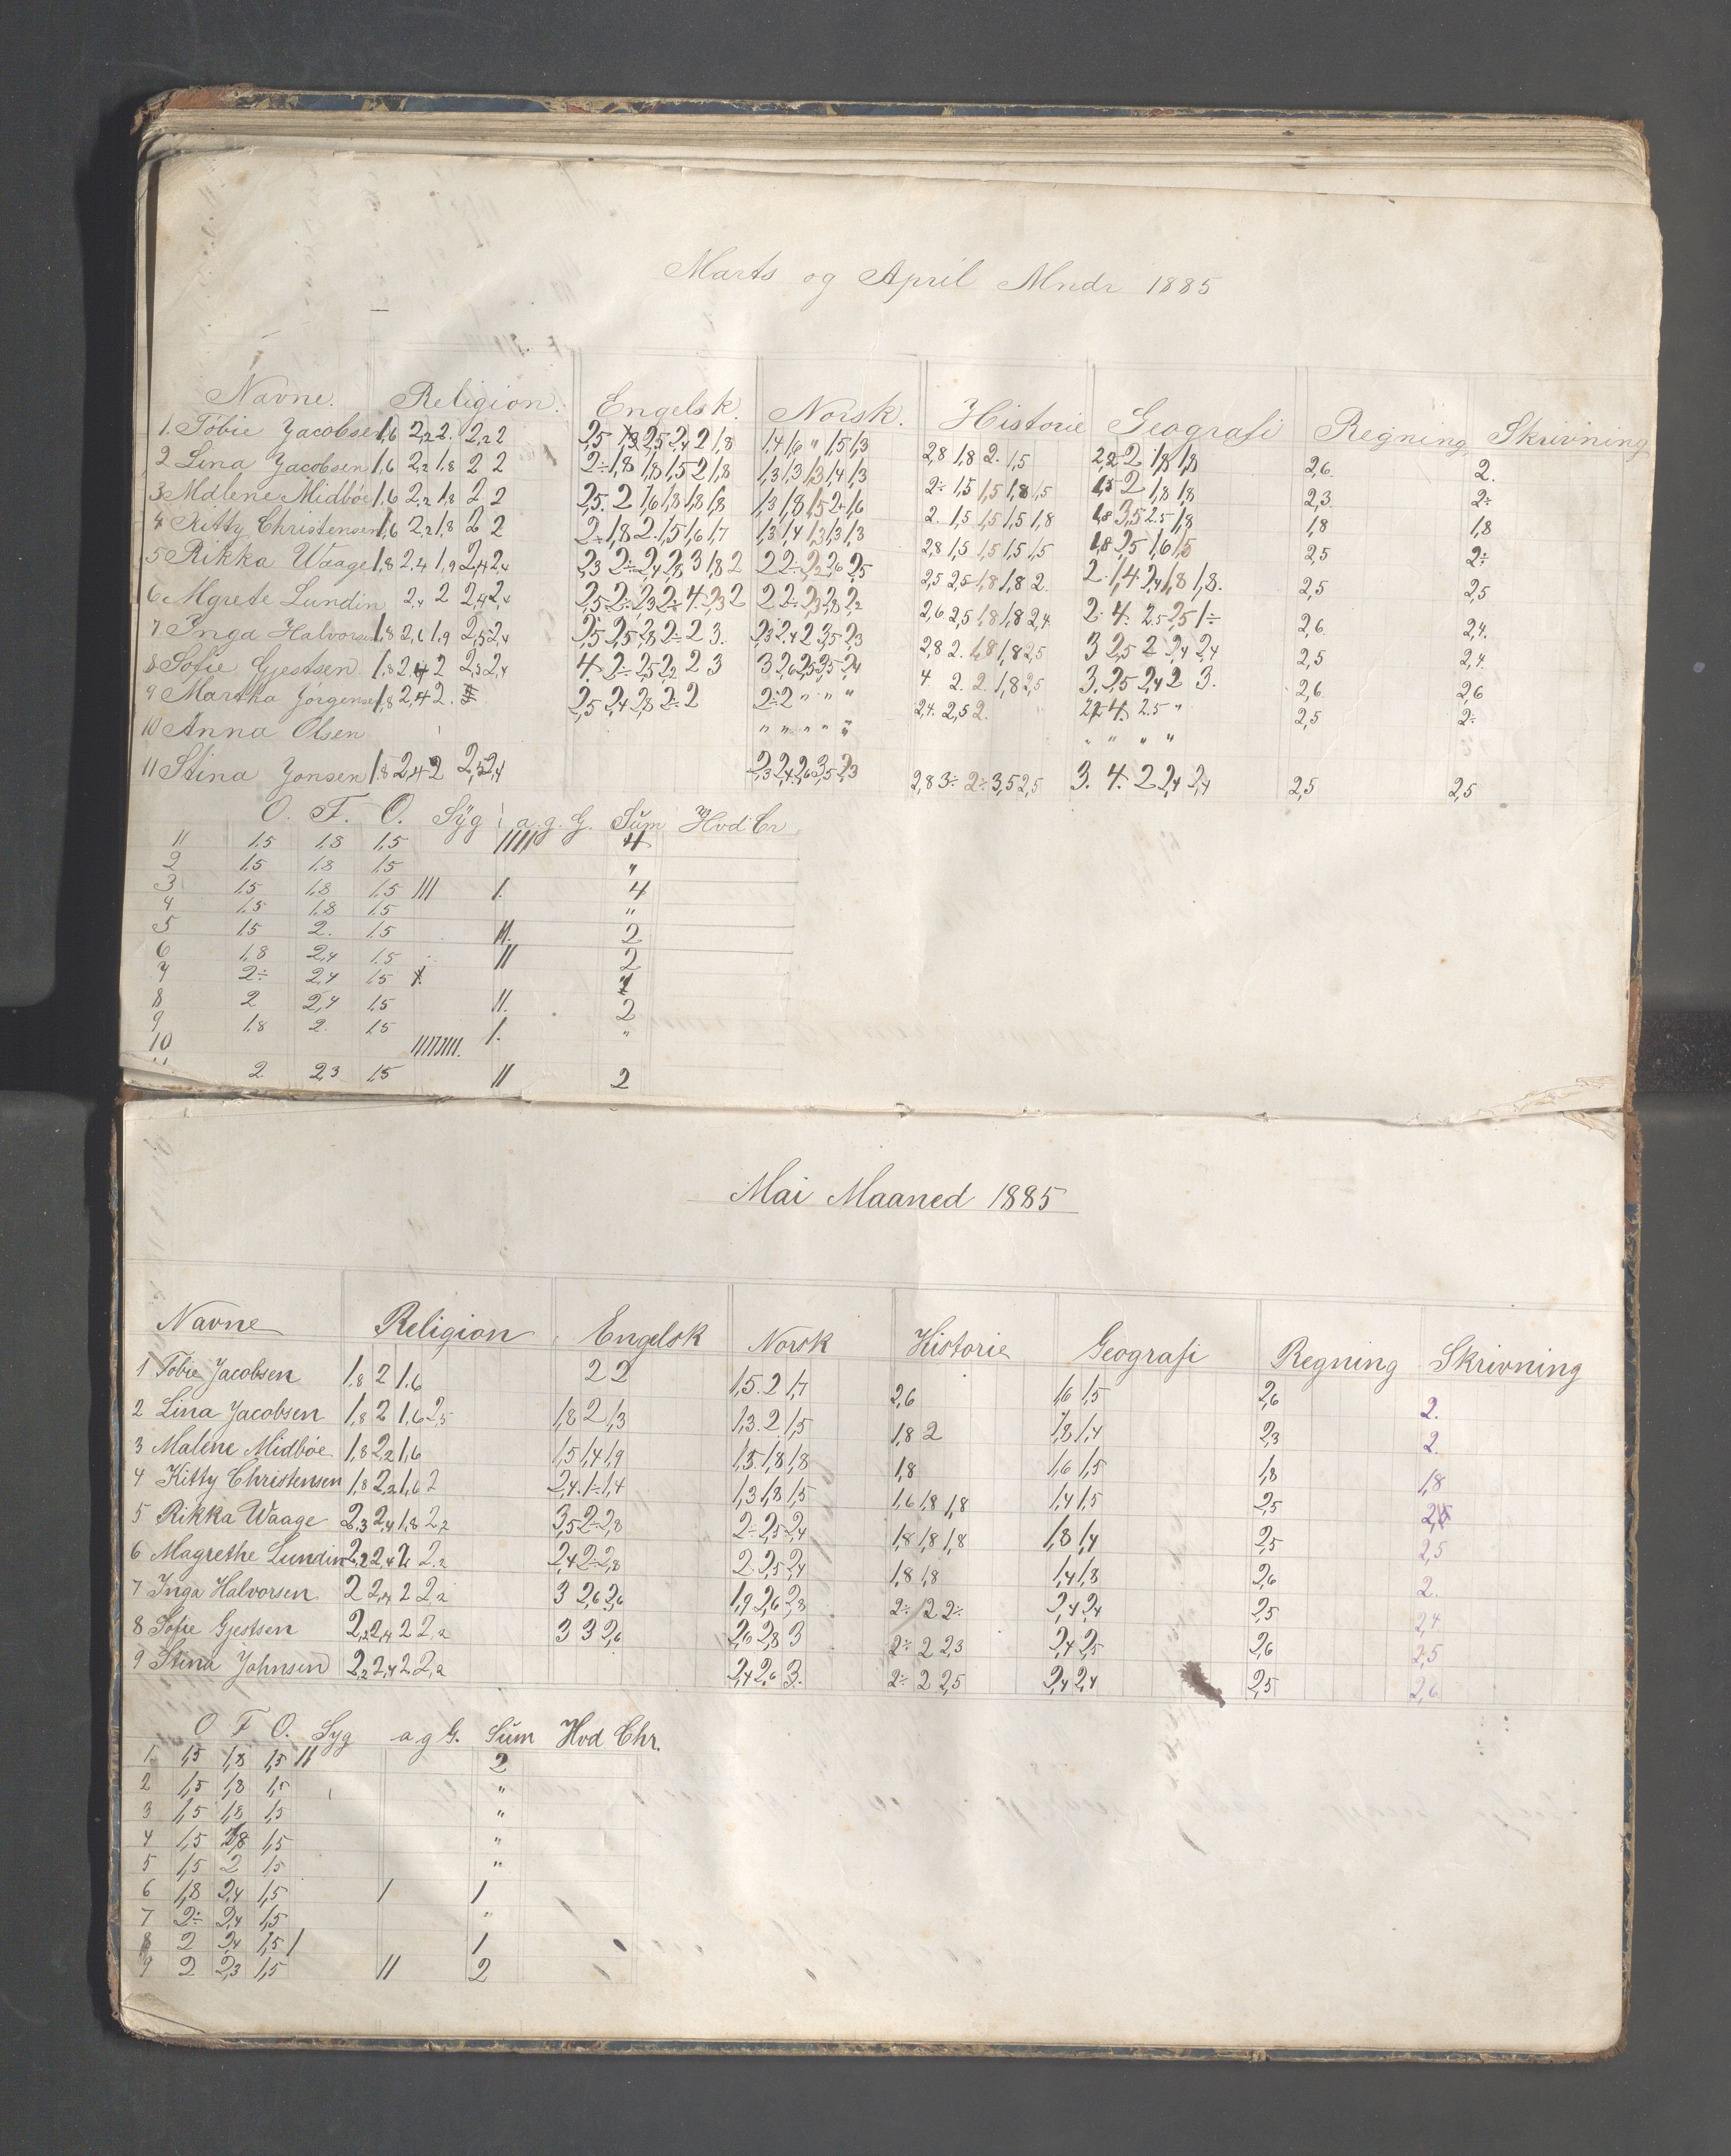 Marts og April Mndr 1885
Navne. Religion. Engelsk. Norsk. Historie Geografi Regning Skrivning
1. Tobie Jacobsen 1,6 2,2 2. 2,2 2 1,4 1,6 " 1,5 1,3 2,8 1,8 2. 1,5 2,6 2.
2 Lina Jacobsen 1,6 2,2 1,8 2 2 2÷ 1,8 1,8 1,5 2 1,8 1,3 1,3 1,3 1,4 1,3 2÷ 1,5 1,5 1,8 1,5 2,3 2÷
3 Malene Midbøe 1,6 2,2 1,8 2 2 2,5. 2 1,6 1,8 1,8 1,8 2. 1,5 1,5 1,5 1,8 1,8 3,5 2.5 1,8 1,8 1,8
4 Kitty Christensen 1,6 2,2 1,8 2 2 2÷ 1,8 2. 1,5 1,6 1,7 1,3 1,4 1,3 1,3 1,3 2,8 1,5 1,5 1,5 1,5 1,8 2,5 1,6 1,5 2,5 2÷
5 Rikka Waage 1,8 2,4 1,9 2,4 2,4 2,3 2÷ 2,4 2,8 3 1,8 2 2,5 2,5 1,8 1,8 2. 2 1,4 2,4 1,8 1,8. 2,5 2,5
6 Mgrete Lundin 2,4 2 2,4 2,4 2,6 2,5 1,8 1,8 2,4. 2,6 2,4.
7. Inga Halvorsen 1,8 2,6 1,9 2,5 2,4 2,5 2,5 2,8 2÷ 2 3. 2,3 2,4 2 3,5 2,3 2,8 2. 1,8 1,8 2,5 3 2,5 2 2,4 2,4 2,5 2,4.
8 Sofie Gjestsen 1,8 2,4 2 2,3 2,4 4. 2÷ 2,5 2,2 2 3 4 2. 2. 1,8 2,5 3. 2,5 2,4 2 3. 2,6 2,6
9 Martha Jørgensen 1,8 2,4 2. 2,5 2,4 2,8 2÷ 2 2÷ 2 " " " 2,4. 2,5 2. 2,5 2÷
10 Anna Olsen " " " " " " " " "
11 Stina Jonsen 1,8 2,4 2 2,5 2,4 2,3 2,4 2,6 3,5 2,3 2,8 3÷ 2÷ 3,5 2,5 3. 4. 2 2,4 2,4 2,5 2,5
O. F. O. Syg a. g. G. Sum Hvd Cr
11 1,5 1,8 1,5 //// 4
2 1,5 1,8 1,5 "
3 1,5 1,8 1,5 /// /. 4
4 1,5 1,8 1,5 "
5 1,5 2. 1,5 //. 2
6 1,8 2,4 1,5 // 2
7 2÷ 2,4 1,5 /. 1
8 2 2,4 1,5 //. 2
9 1,8 2. 1,5 /. "
10 ////////.
11 2 2,3 1,5 // 2
Mai Maaned 1885
Navne Religion Engelsk Norsk Historie Geografi Regning Skrivning
1 Tobie Jacobsen 1,8 2 1,6 2 2 1,5. 2 1,7 2,6 1,6 1,5 2,6 2.
2 Lina Jacobsen 1,8 2 1,6 2,5 1,8 2 1,3 1,3. 2 1,5 1,8 2 1,8 1,4 2,3 2.
3 Malene Midbøe 1,8 2,2 1,6 1,5 1,4 1,9 1,5. 1,8 1,8 1,8 1,6 1,5 1,8 1,8
4 Kitty Christensen 1,8 2,2 1,6 2 2,4. 1÷ 1,4 1,3 1,8 1,5 1,6 1,8 1,8 1,4 1,5 2,5
5 Rikka Waage 2,3 2,4 1,8 2,2 3,5 2÷ 2,8 2÷ 2,5 2,4 1,8 1,8 1,8 1,8 1,4 2,5 2,5
6 Magrethe Lundin 2,2 2,4 2 2,2 2,4 2÷ 2,8 2 2,5 2,4 1,8 1,8 1,4 1,8 2,6 2.
7 Inga Halvorsen 2 2,4 2 2,2 3 2,6 2,6 1,9 2,6 2,8 2÷ 2 2÷ 2,4 2,4 2,5 2,4
8 Sofie Gjestsen 2,2 2,4 2 2,2 3 3 2,6 2,6 2,8 3 2÷ 2 2,3 2,4 2,5 2,6 2,5
9 Stina Johnsen 2,2 2,4 2 2,2 2,4 2,6 3. 2÷ 2 2,5 2,4 2,4 2,5 2,6
O F O. Syg a g G. Sum Hvd Chr.
1. 1,5 1,8 1,5 // 2
2 1,5 1,8 1,5 "
3 1,5 1,8 1,5 "
4 1,5 1,8 1,5 "
5 1,5 2 1,5 "
6 1,8 2,4 1,5 / 1
7 2÷ 2,4 1,5 "
8 2 2,4 1,5 / 1
9 2 2,3 1,5 // 2